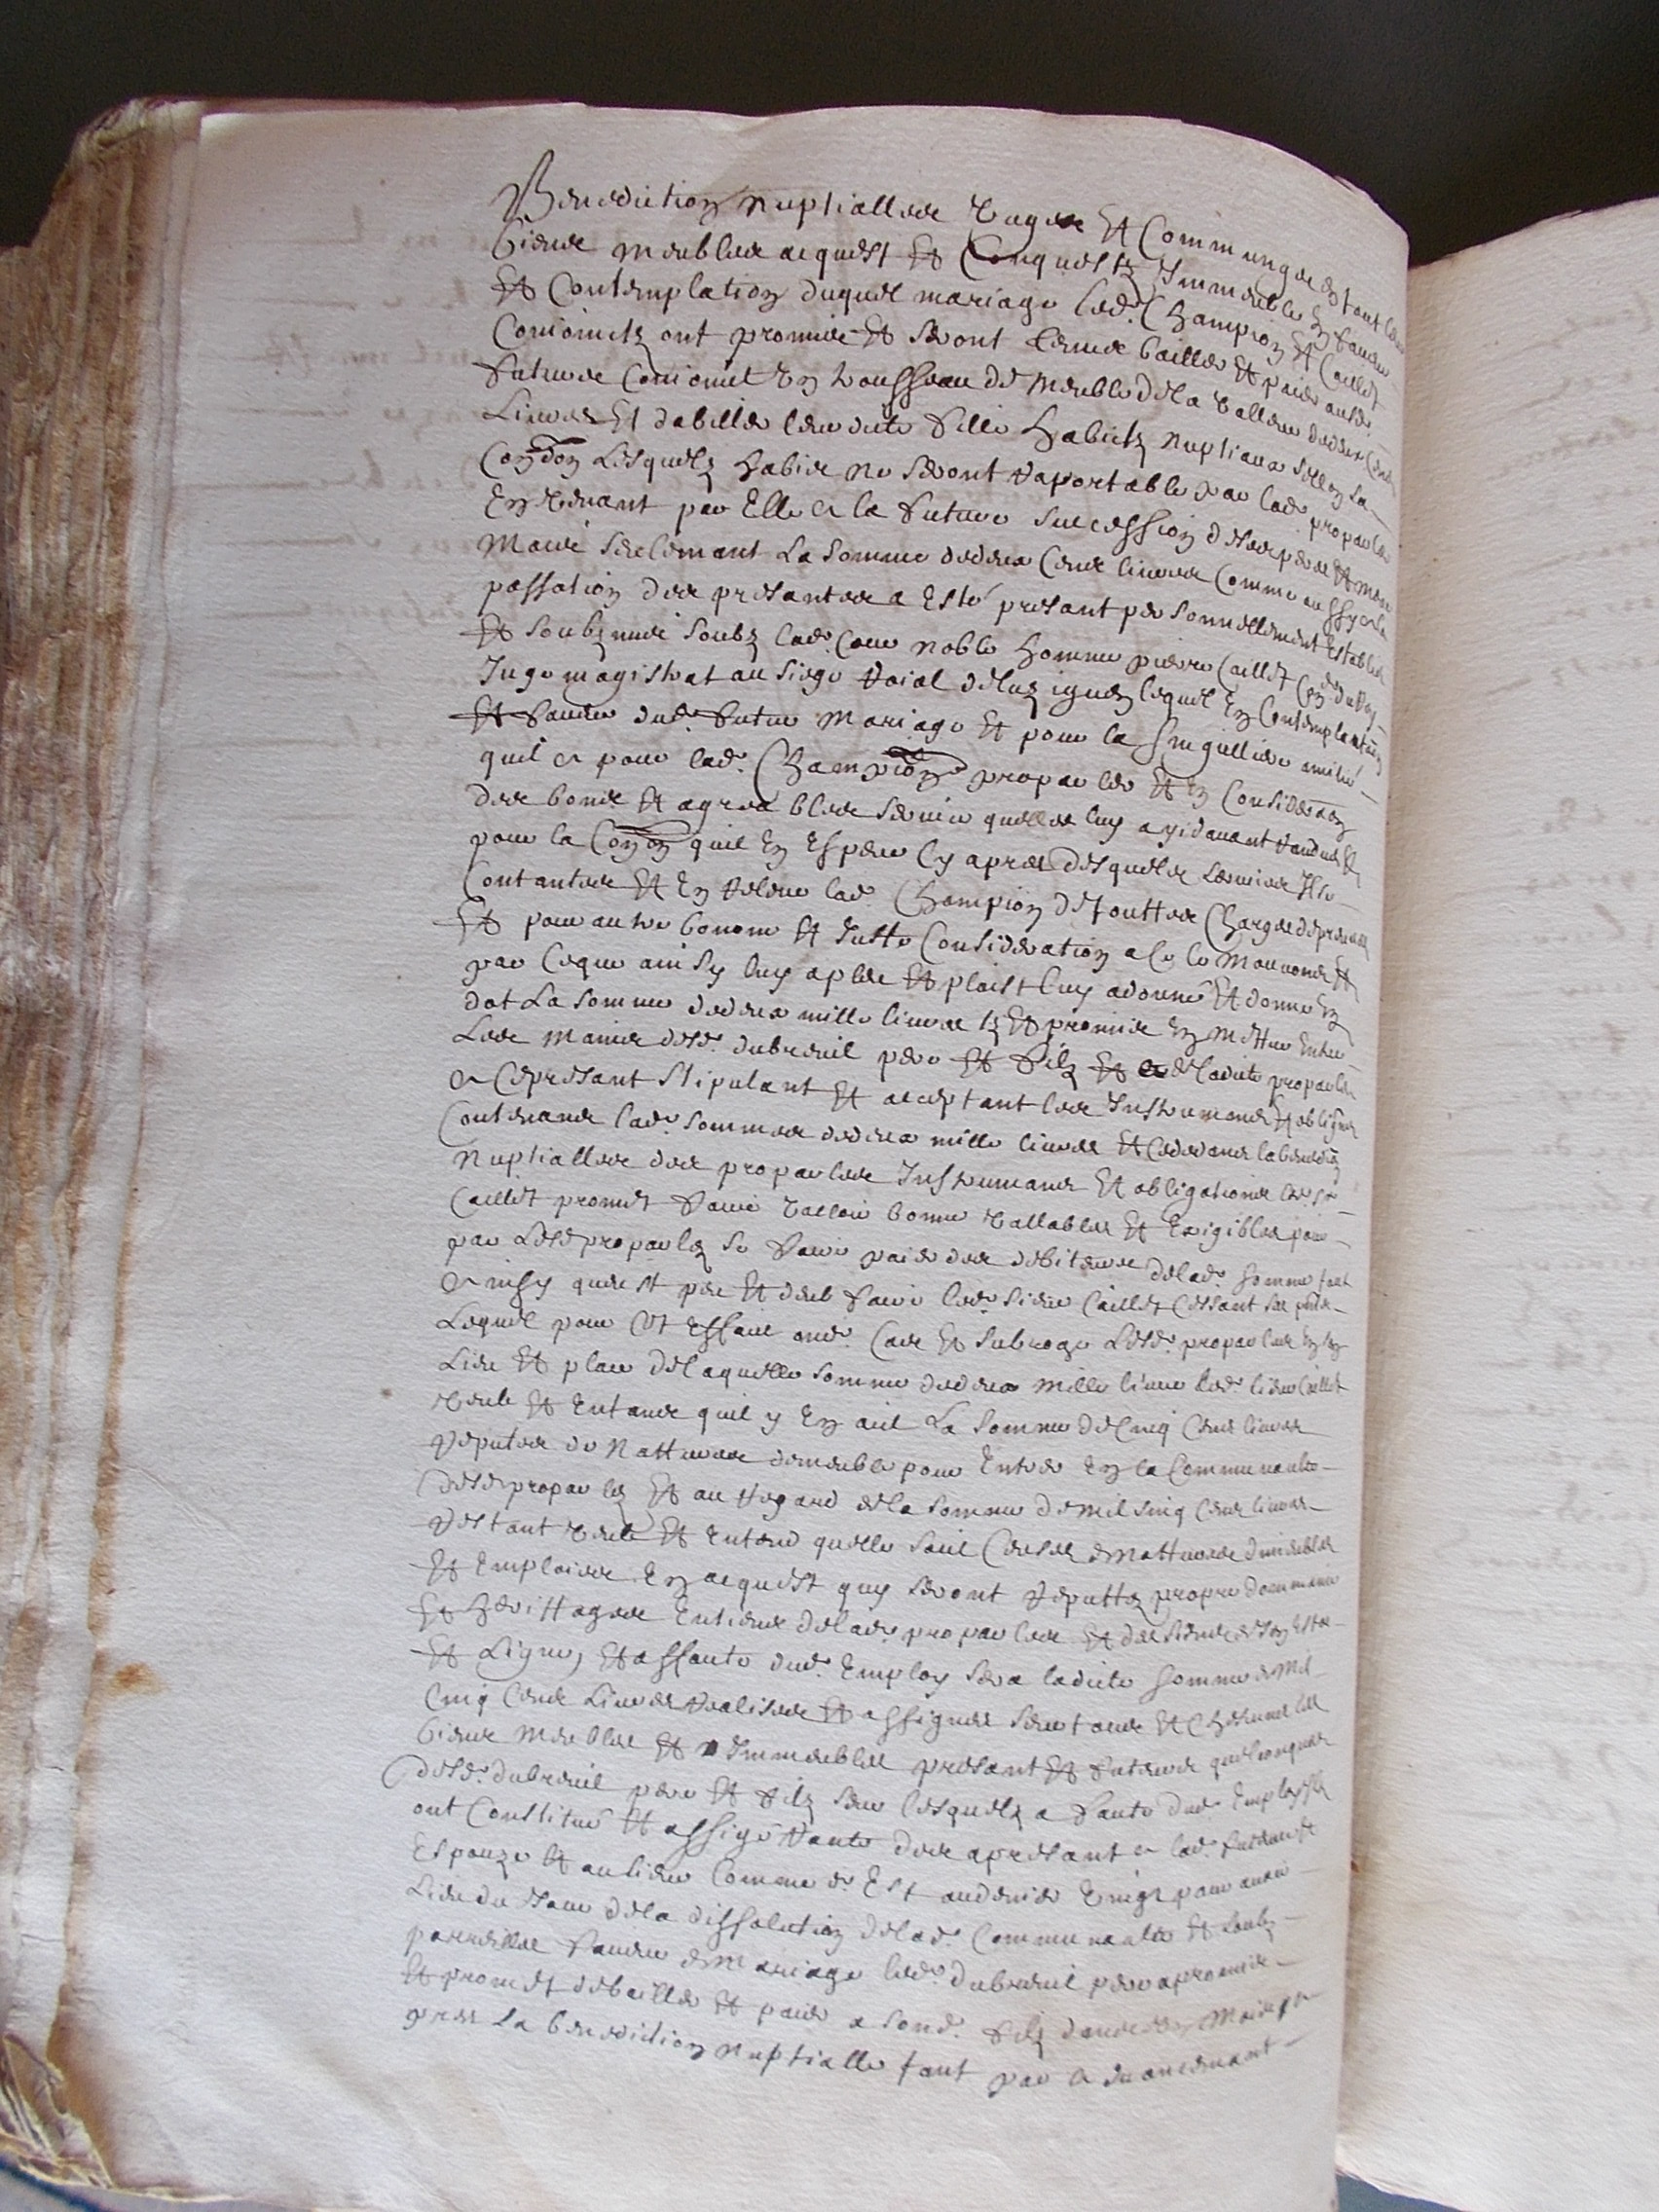 Benediction nuptialles vages Et Communques de tout leurs
biens meubles acquest Et Conquestz Immeubles En faveur
Et Contemplation duquel mariage led. Champion Et Caillet
Conioinctz ont promis Et seront tenus bailler Et paier ausd.
futurs Conioinct En trousseau de meuble de la valleur de deux Cens
Livres Et dabiller leur dicte fille habictz nuptiaux sellon sa
Con̄don Lesquelz habis ne seront raportable par lad. proparlée
En venant par Elle a la future succession de ses pere Et mere
Mais seulemant La somme de deux Cens livres Comme aussy a la
passation des presantes a Esté presant personnellement Estably
Et soubzmis soubz lad. Cour noble homme pierre Caillet
Juge magistrat au siege roial de Luzignen lequel En Contemplation
Et faveur dud. futur mariage Et pour la singulliere amitié
quil a pour lad. Champion proparlée Et En Consideraon
des bons Et agreables service quelles luy a cidevant randus Et
pour la Con̄on quil En Espere Cy apres desquelz services Il se
Contante Et En releve lad. Champion de touttes Charges de preuves
Et pour autre bonne Et Juste Consideration a Ce le Mouvans Et
par Ceque ainsy luy a pleu Et plaist luy a donné Et donne En
dot La somme de deux mille livres tz Et promis En mettre Entre
Les mains desd. dubreuil pere Et filz Et de ladicte proparlée
a Cepresant stipulant Et acceptant les Instrumans Et obligaons
Contenans lad. sommes de deux mille livres Et Cedevans la benedion
nuptialles des proparles Instrumans Et obligations led. sr
Caillet promet faire valloir bonne vallables Et Exigibles pour
par Lesd proparlez se faire paier des debiteurs de lad. somme tout
ainsy quest peu Et deub faire led. sieur Caillet Cessant ses pntes
Lequel pour Cet Effaict a ced. Cede Et subroge Lesd. proparles En son
Lieu Et place de laquelle somme de deux mille livres led. sieur Caillet
veult Et Entand quil y En ait La somme de Cinq Cens livres
reputée de Natture de meuble pour Entrer En la Communaulté
desd proparlez Et au regard de la somme de mil cinq Cens livres
restant veult Et Entand quelle soit Censée de natture dimmeubles
Et Emploiée En acquest quy seront reputtez propre dommaine
Et herittages Entiens de lad. proparlée Et des siens de son Estoc
Et Ligne, Et a ffaute dud. Employ sera ladicte somme de Mil
Cinq Cens Livres realisée Et assignée sur tous Et Chescuns les
biens Meubles Et Immeubles presant Et futeurs quelconques
desd. dubreuil pere Et filz sur lesquelz a faute dud. Employ Ilz
ont Constitué Et assigné rante des apresant a lad. future
Espouze Et au siens Comme dit Est au denier vingt pour avoir
Lieu du Jour de la dissolution de lad. Communaulté Et soubz
pareilles faveur de Mariage led. dubreuil pere a promis
Et promet de bailler Et paier a sond. filz dans deux Mois a
pres La benediction nuptialle tant par advancemant